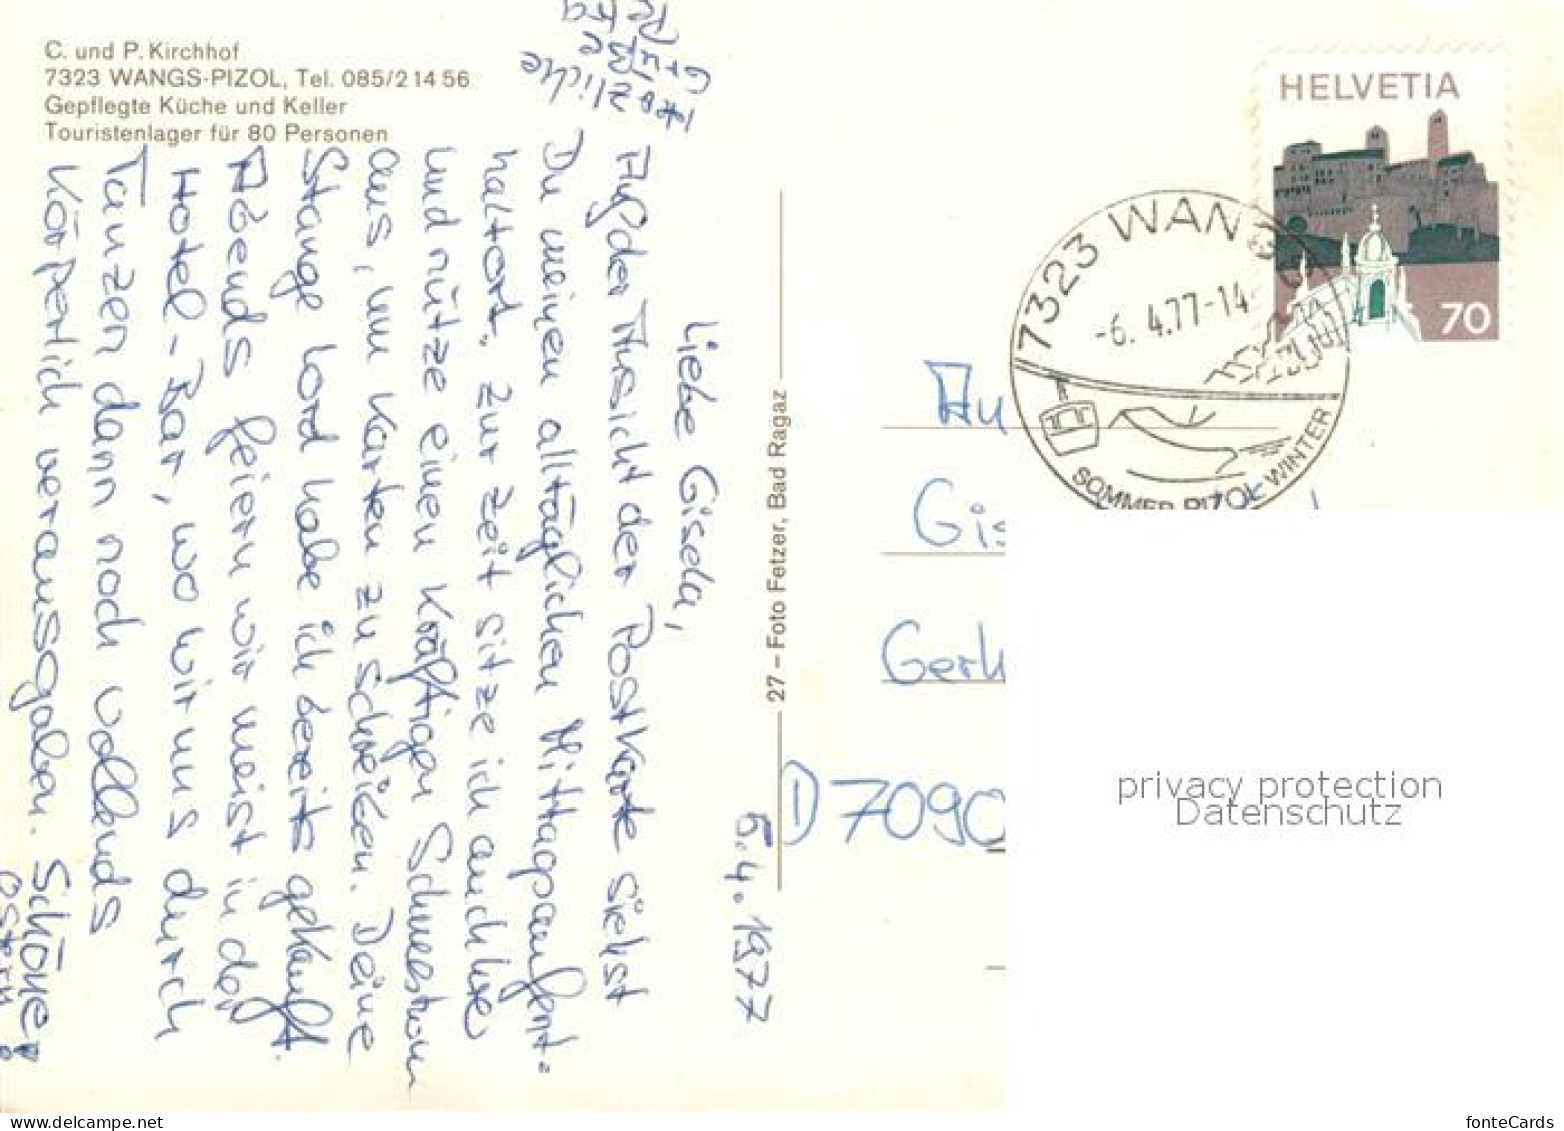 C. und P. Kirchhof
7323 WANGS-PIZOL, Tel. 085/2 14 56
Gepflegte Küche und Keller
Touristenlager für 80 Personen
5.4.1977
Liebe Gisela,
Auf der Ansicht der Postkarte siehst
Du meinen alltäglichen Mittagsaufent-
haltort. Zur Zeit sitze ich auch hier
und nütze einen kräftigen Schneesturm
aus, um Karten zu schreiben. Deine
Stange habe ich bereits gekauft.
Abends feiern wir meist in der
Hotel-Bar, wo wir uns durch
Tanzen dann noch vollends
körperlich verausgaben. Schöne
Ostern!
Herzliche
Grüße
Petra
27 – Foto Fetzer, Bad Ragaz
HELVETIA
70
7323 WANGS
-6.4.77-14
SOMMER PIZOL WINTER
An
Gis
Gerh
D 7090
privacy protection
Datenschutz
www.delcampe.net
fonteCards